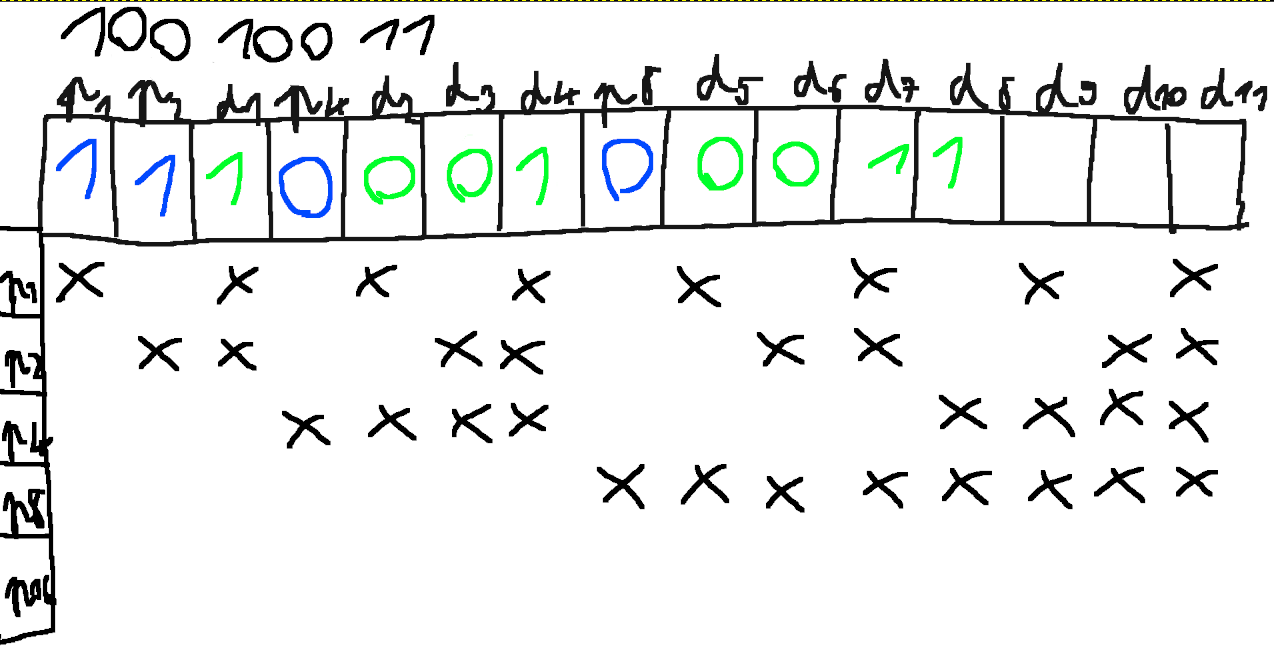 100 100 11
p1 p2 d1 p4 d2 d3 d4 p8 d5 d6 d7 d8 d9 d10 d11
1 1 1 0 0 0 1 0 0 0 1 1
p1 X X X X X X X X
p2 X X X X X X X X
p4 X X X X X X X X
p8 X X X X X X X X